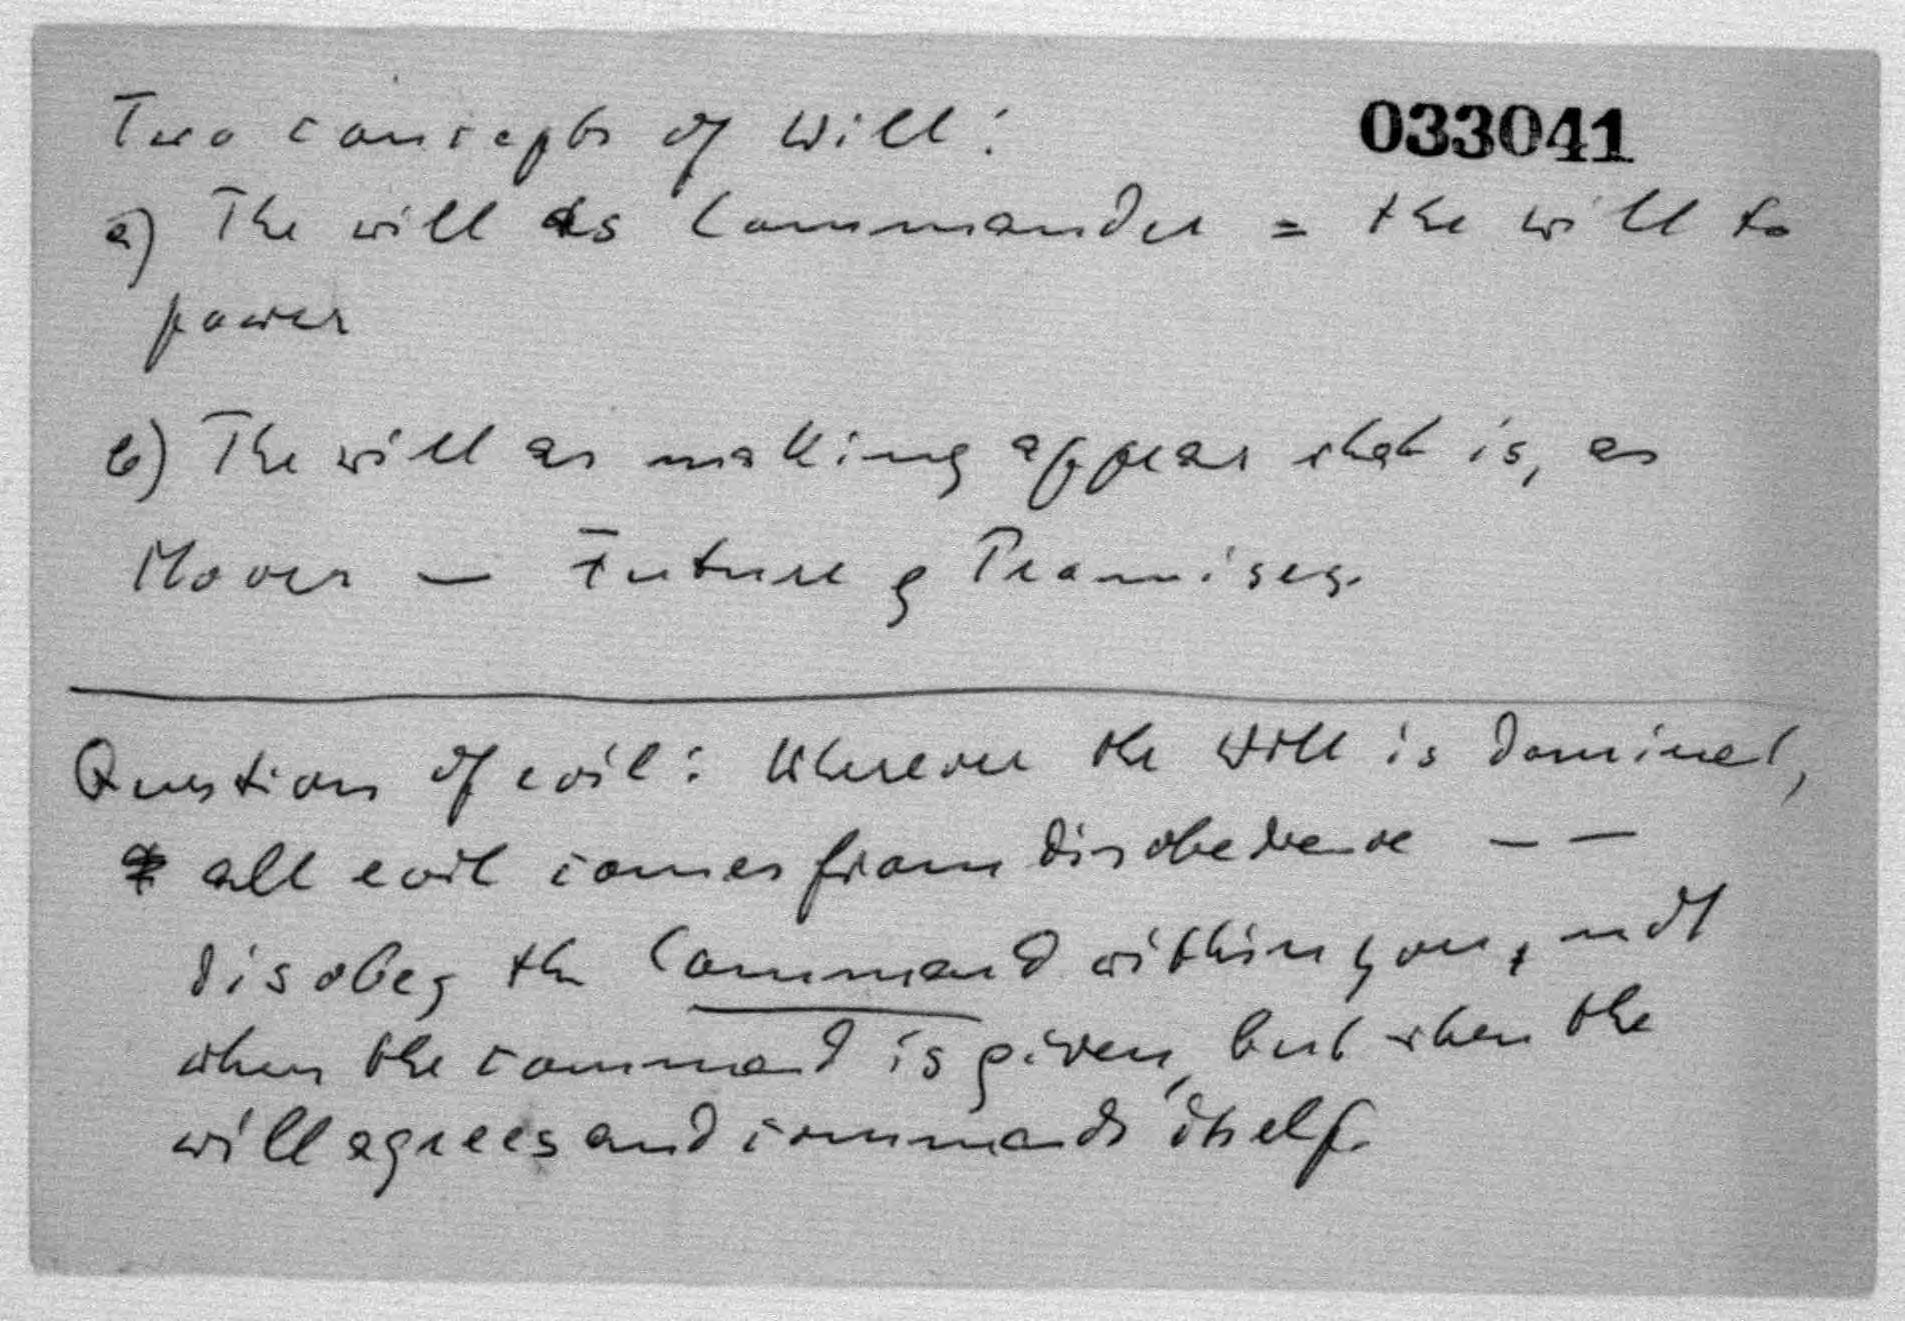 Two concepts of Will:
033041
a) The will as Commander = the will to
power
b) The will as making appear what is, as
Mover — Future & Promises.
Question of evil: Wherever the Will is dominat,
all evil comes from disobedience — —
disobey the Command within you, not
when the command is given, but when the
will agrees and commands itself.